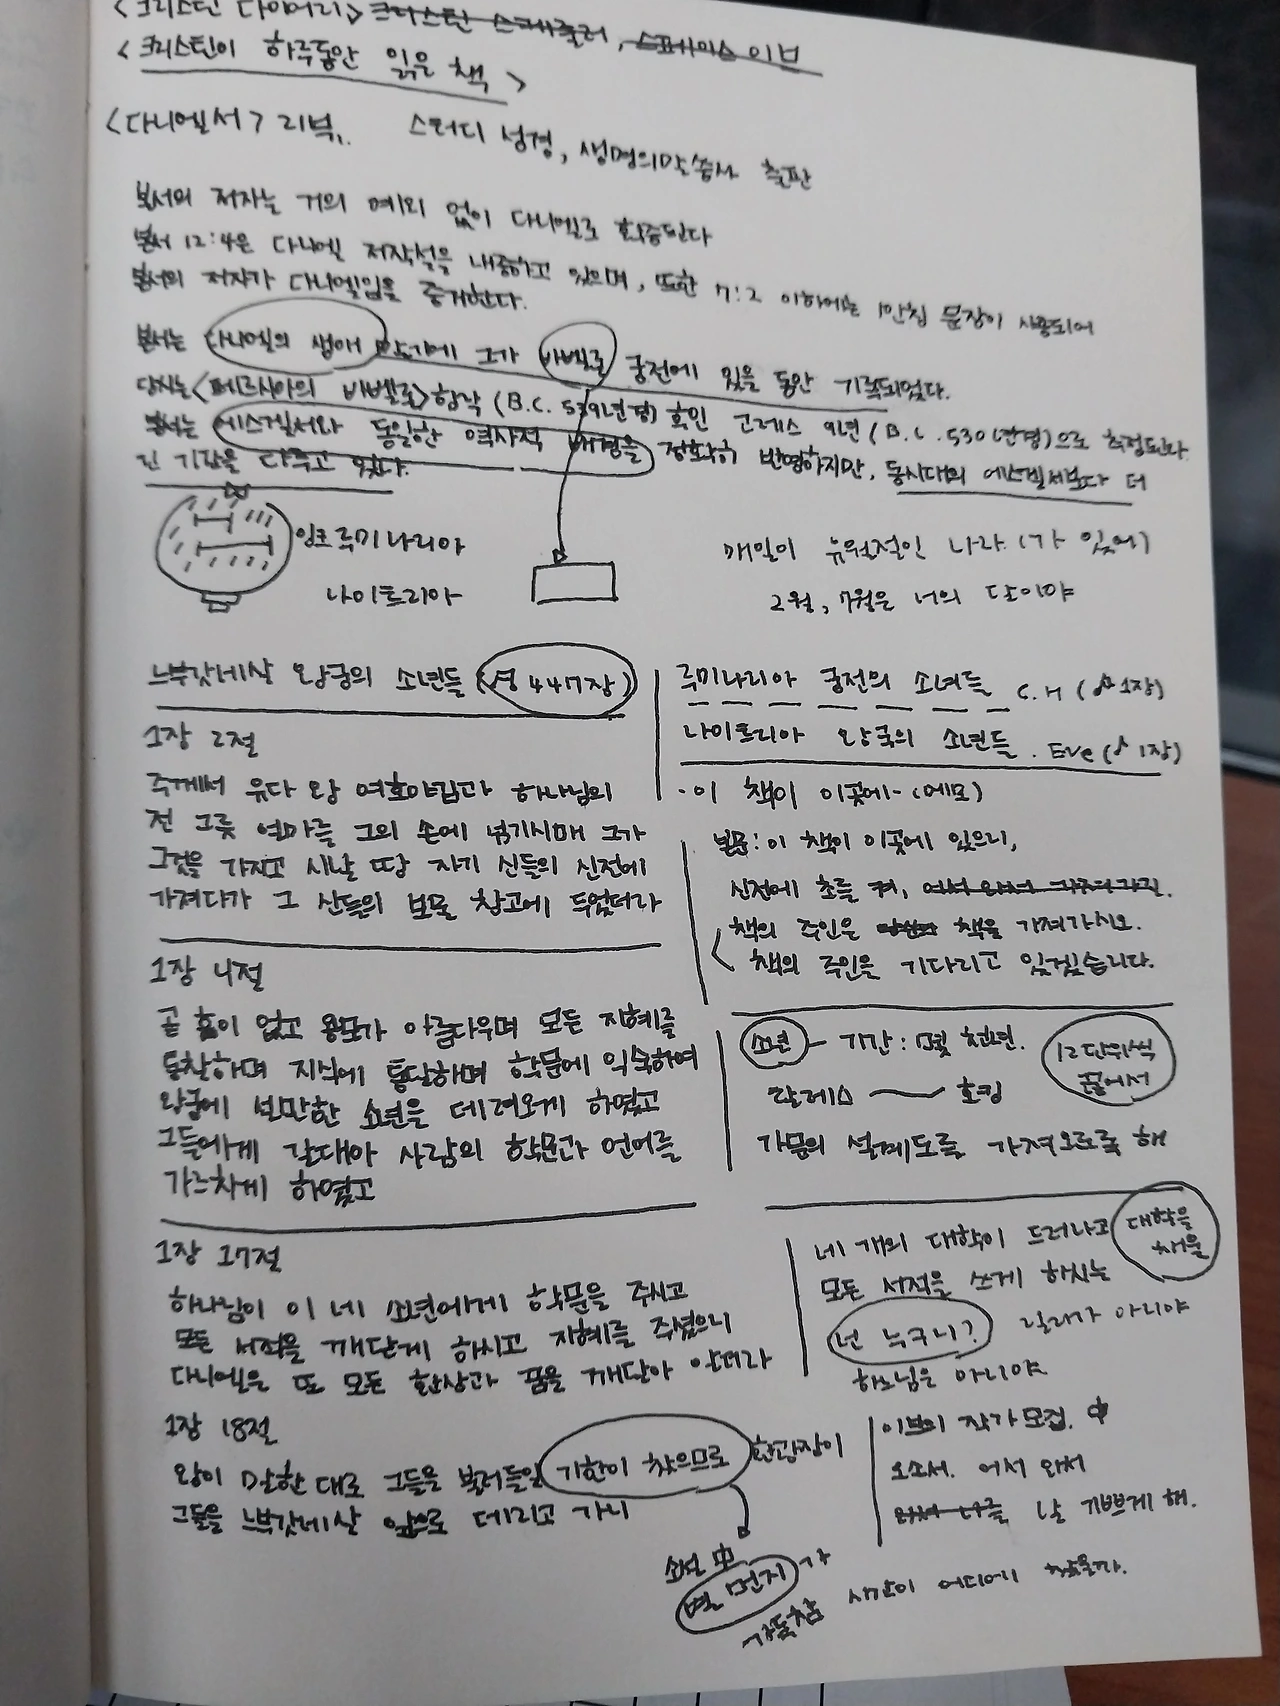 <크리스틴 다이어리> 크리스틴 스케줄러, 스페이스 이브
<크리스틴이 하루동안 읽은 책>
<다니엘서> 리뷰. 스터디 성경, 생명의말씀사 출판
본서의 저자는 거의 예외 없이 다니엘로 확증된다
본서 12:4은 다니엘 저작설을 내증하고 있으며, 또한 7:2 이하에는 1인칭 문장이 사용되어
본서의 저자가 다니엘임을 증거한다.
본서는 다니엘의 생애 말기에 그가 바벨론 궁전에 있을 동안 기록되었다.
당시는 <페르시아의 바벨론> 함락 (B.C. 539년경) 혹인 고레스 9년 (B.C. 530년경)으로 측정된다.
본서는 에스겔서와 동일한 역사적 배경을 정확히 반영하지만, 동시대의 에스겔서보다 더
긴 기간을 다루고 있다.
잉크루미나리아
나이트리아
매일이 유월절인 나라 (가 있어)
2월, 7월은 너의 달이야
느부갓네살 왕궁의 소년들 (성 447장)
1장 2절
주께서 유다 왕 여호야김과 하나님의
전 그릇 얼마를 그의 손에 넘기시매 그가
그것을 가지고 시날 땅 자기 신들의 신전에
가져다가 그 신들의 보물 창고에 두었더라
1장 4절
곧 흠이 없고 용모가 아름다우며 모든 지혜를
통찰하며 지식에 통달하며 학문에 익숙하여
왕궁에 설만한 소년을 데려오게 하였고
그들에게 갈대아 사람의 학문과 언어를
가르치게 하였고
1장 17절
하나님이 이 네 소년에게 학문을 주시고
모든 서적을 깨닫게 하시고 지혜를 주셨으니
다니엘은 또 모든 환상과 꿈을 깨달아 알더라
1장 18절
왕이 말한 대로 그들을 불러들일 기한이 찼으므로 환관장이
그들을 느부갓네살 앞으로 데리고 가니
루미나리아 궁전의 소녀들 C.H (♫ 1장)
나이트리아 왕국의 소년들. Eve (♪ 1장)
·이 책이 이곳에- (메모)
본문: 이 책이 이곳에 있으니,
신전에 초를 켜,
책의 주인은 책을 가져가시오.
책의 주인을 기다리고 있겠습니다.
소년 - 기간: 몇 천년.
12단위씩
꿈에서
탈레스 호킹
가문의 설계도를 가져오도록 해
네 개의 대학이 드러나고
대학을
채울
모든 서적을 쓰게 하시는
넌 누구니? 날라가 아니야
하느님은 아니야
이브의 작가 모집. 中
오소서. 어서 와서
날 기쁘게 해.
소년 中
별 먼지가
가득참
시간이 어디에 찼을까.